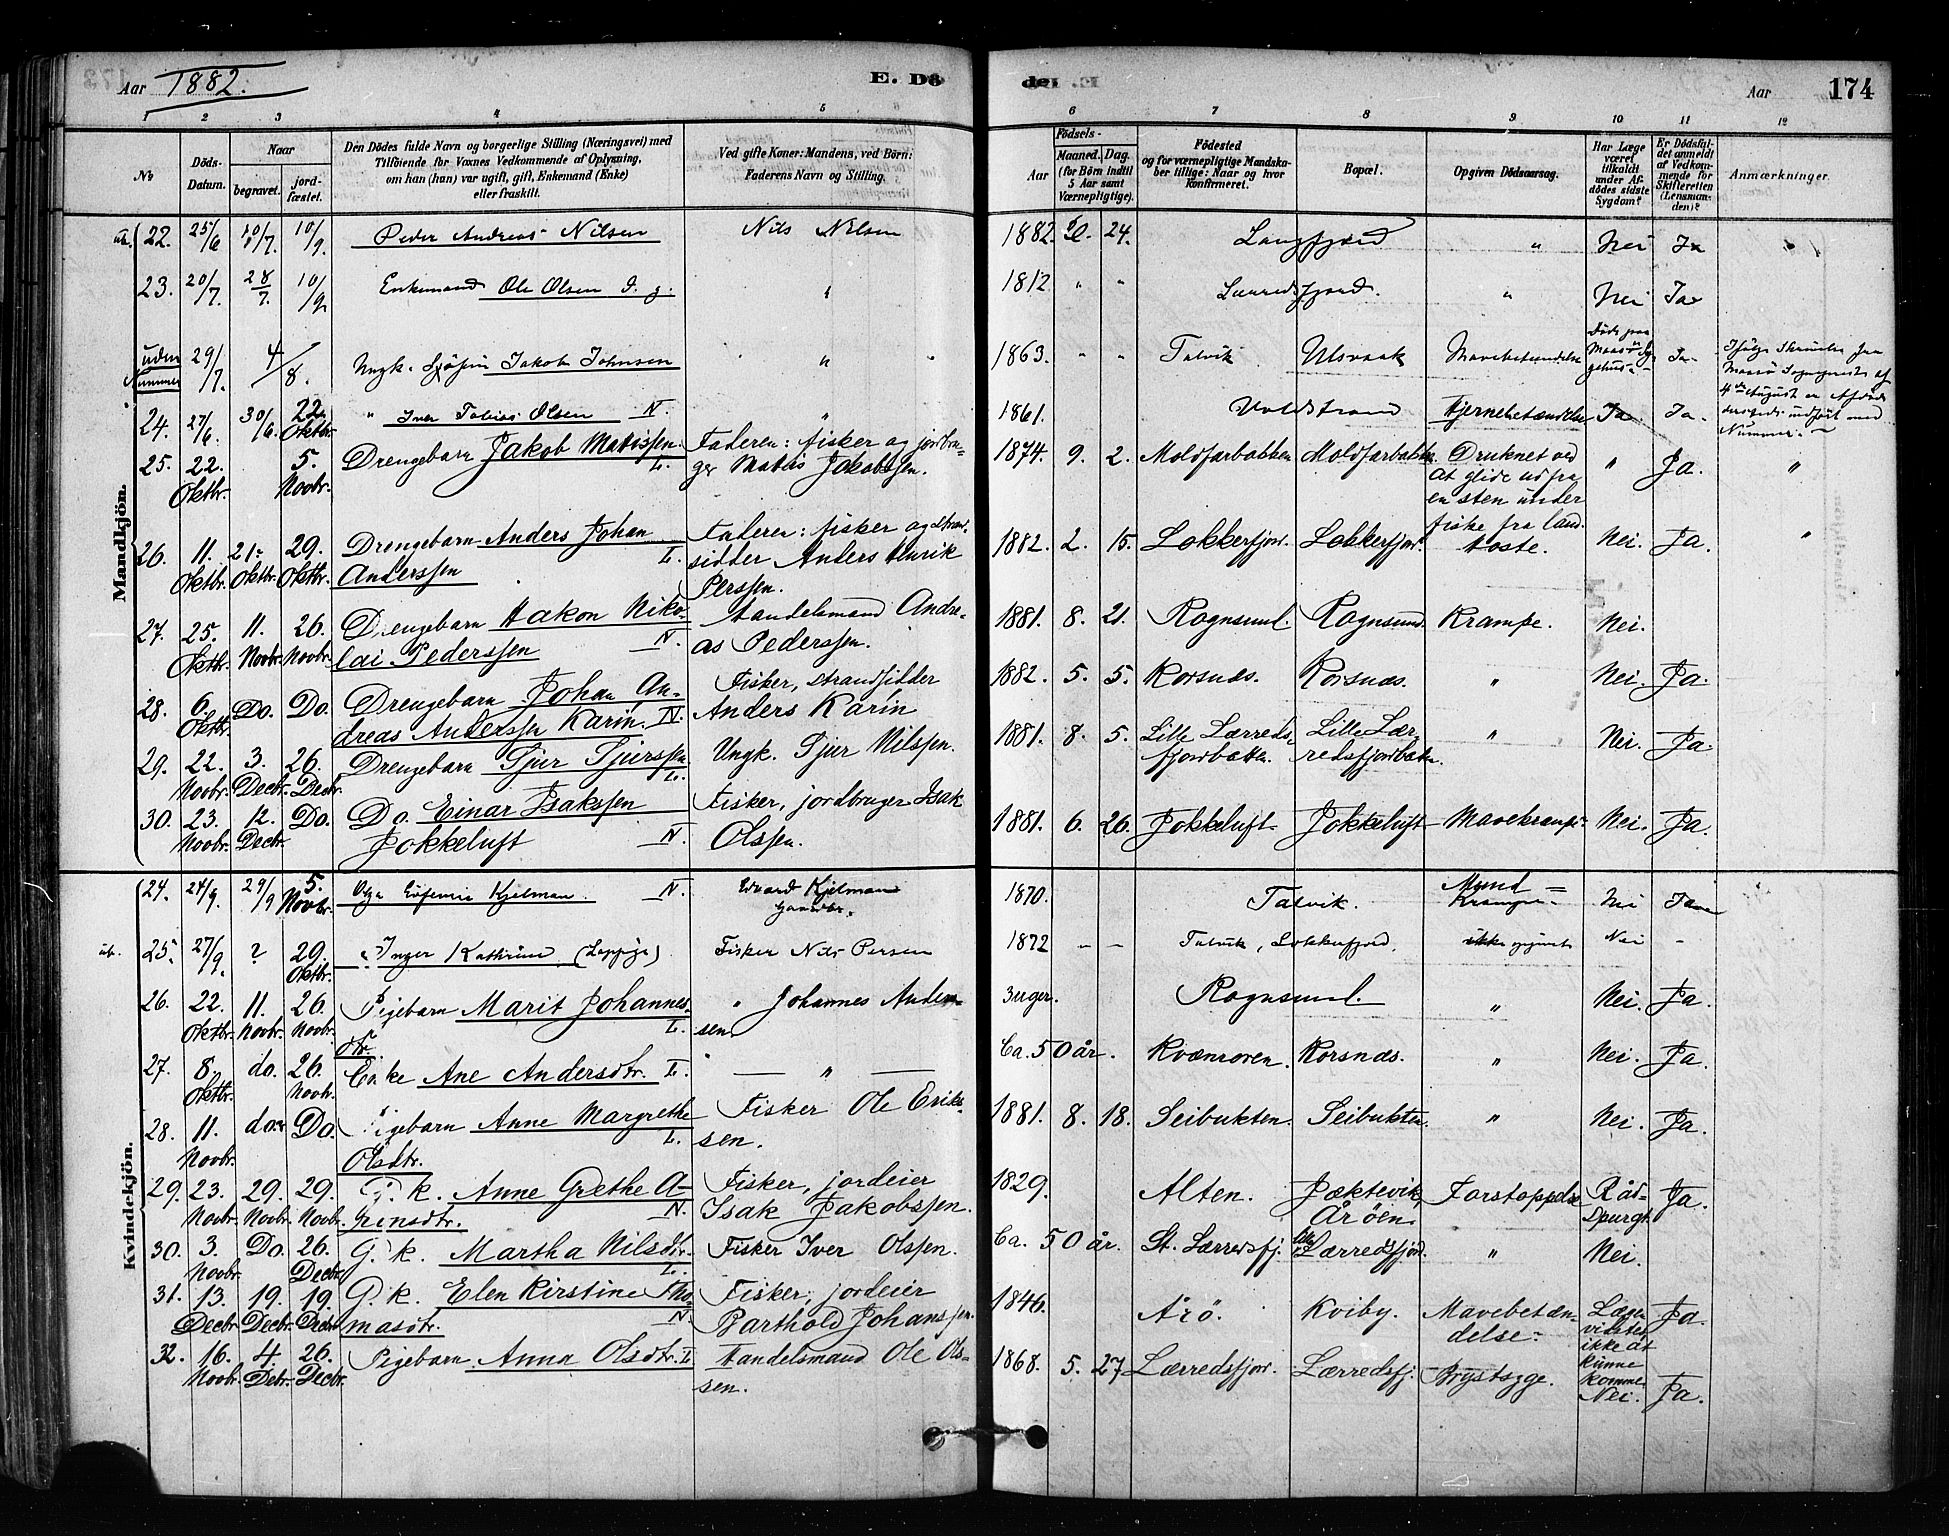 Aar 1882.
E. Dö
den
Aar
174
1 2 3 4 5 6 7 8 9 10 11 12
No
Döds-Datum.
Naar
begravet.
jordfæstet.
Den Dödes fulde Navn og borgerlige Stilling (Næringsvei) med
Tilföiende for Voxnes Vedkommende af Oplysning,
om han (hun) var ugift, gift, Enkemand (Enke)
eller fraskilt.
Ved gifte Koner: Mandens, ved Börn:
Faderens Navn og Stilling.
Födsels-
Aar
Maaned. Dag.
(for Börn indtil
5 Aar samt
Værnepligtige).
Födested
og for værnepligtige Mandskaber tillige: Naar og hvor
Konfirmeret.
Bopæl.
Opgiven Dödsaarsag.
Har Læge været tilkaldt under Afdödes sidste Sygdom?
Er Dödsfaldet anmeldt af Vedkommende for Skifteretten (Lensmanden)?
Anmærkninger.
Mandkjön.
22. 25/6 10/7. 10/9. Peder Andreas Nilsen Nils Nilsen 1882. 24. Langfjord " Nei Ja "
23. 20/7. 28/7. 10/9 Enkemand Ole Olsen " 1812 " " Lerredsfjord. " Nei Ja
uden Nummer 29/7. 4/8. Ungk. Jakob Johnsen " 1863. " " Talvik Ulsvaak Mavebetændelse Døde paa Maasø Sygehus Ja
24. 27/6. 30/6. 22. Oktbr. " Iver Tobias Olsen N. " 1861. Voldstrand Hjernebetændelse Ja Ja
25. 22. Oktbr. 5. Novbr. Drengebarn Jakob Matissen. L. Faderen: fisker og jordbruger Matis Jakobsen. 1874. 9. 2. Moldjarbakken Moldjarbakk. Druknet ved at glide ud fra en sten under fiske fra land. " Ja. "
26. 11. Oktbr. 21. Oktbr. 29. Oktbr. Drengebarn Anders Johan Anderssen L. Faderen: fisker og strandsidder Anders Henrik Perssen. 1882. 2. 15. Lokkerfjor. Lokkerfjor. Hoste. Nei. Ja. "
27. 25. Oktbr. 11. Novbr. 26. Novbr. Drengebarn Hakon Nikolai Pederssen N. Handelsmand Andreas Pederssen. 1881. 8. 21. Rognsund. Rognsund. Krampe. Nei.
28. 6. Oktbr. Do. Do. Drengebarn Johan Andreas Anderssen Karin. N. Fisker, strandsidder Anders Karin 1882. 5. 5. Korsnæs. Korsnæs. " Nei. Ja.
29. 22. Novbr. 3. Decbr. 26. Decbr. Drengebarn Sjur Sjurssen L. Ungk. Sjur Nilssen. 1881. 8. 5. Lille Lærredsfjordbotten. Lille Lærredsfjordbotn. " Nei. Ja.
30. 23. Novbr. 12. Decbr. Do. Do. Einar Isakssen Jokkeluft N. Fisker, jordbruger Isak Olssen. 1881. 6. 26. Jokkeluft Jokkeluft Mavekrampe. Nei. Ja.
Kvindekjön.
24. 24/9. 29/9 5. Novbr. Olga Eufemia Kjelman. N. Edvard Kjelman Gaardbr. 1870. Talvik. Mund=Krampe Nei Ja
25. 27/9. ? 29. Oktbr. Inger Kathrine (Lappige) Fisker Nils Persen 1872 – – Talvik, Lokkerfjord, ikke opgivet Nei –
26. 22. Oktbr. 11. Novbr. 26. Novbr. Pigebarn Marit Johannesdtr. L. " Johannes Andersen 3 uger. Rognsund. " Nei. Ja.
27. 8. Oktbr. do. 26. Novbr. Enke Ane Andersdtr. L. — " — Ca. 50 år. Kvænroren. Korsnæs. " Nei. Ja.
28. 11. Novbr. do. Do. Pigebarn Anne Margrethe Olsdtr. L. Fisker Ole Eriksen. 1881. 8. 18. Seibukten. Seibukten. " Nei. Ja.
29. 23. Novbr. 29. Novbr. 29. Novbr. G. k. Anne Grethe N. Fisker, jordeier Isak Jakobssen. 1829. Alten. Jæktevik, Årøen. Forstoppelse Rådspurgt. Ja.
30. 3. Novbr. Do. 26. Decbr. G. k. Martha Nilsdtr. L. Fisker Iver Olssen. Ca. 50 år. St. Lærredsfj. Lærredsfjord. " Nei.
31. 13. Decbr. 19. Decbr. 19. Decbr. G. k. Elen Kirstine Thomasdtr. N. Fisker, jordeier Barthold Johanssen. 1846. Årø. Kviby. Mavebetændelse. Lægen vidstes ikke at kunne komme. Ja.
32. 16. Novbr. 4. Debr. 26. Decbr. Pigebarn Anna Olsdtr. L Handelsmand Ole Olssen. 1868. 5. 27 Lærredsfjor. Lærredsfj. Brystsyge. Nei. Ja.